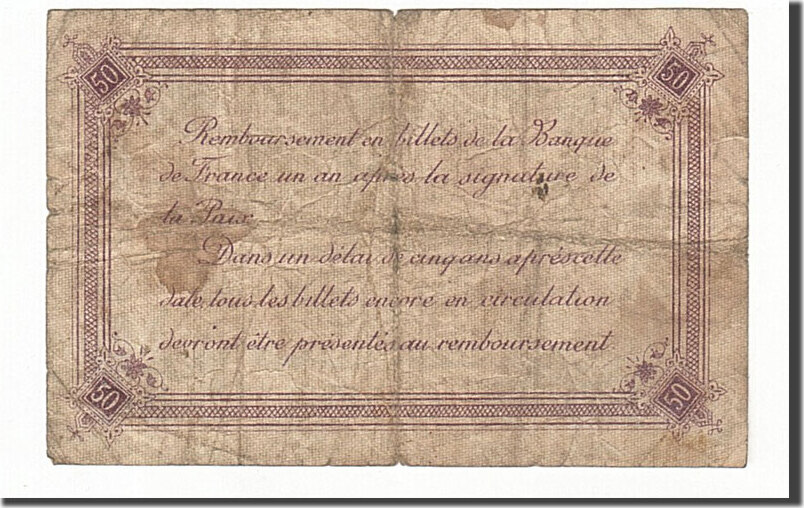 50 50
Remboursement en billets de la Banque
de France un an après la signature de
la Paix
Dans un délai de cinq ans aprés cette
date, tous les billets encore en circulation
devront être présentés au remboursement
50 50